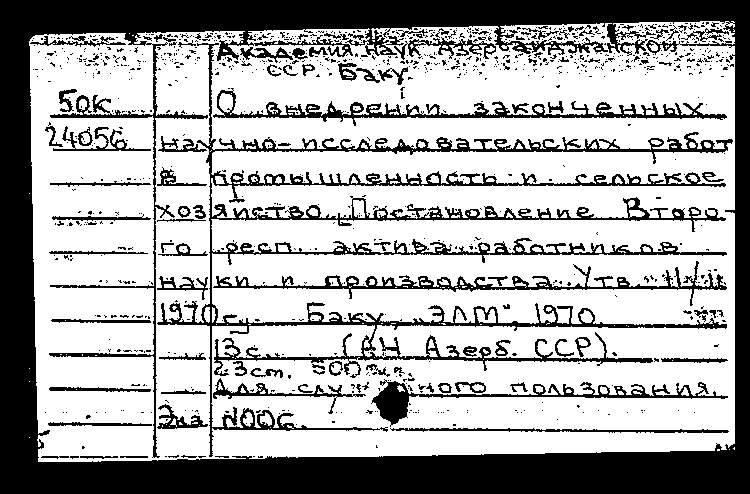 Академия наук Азербайджанской
ССР. Баку.
50к О внедрении законченных
24056 научно-исследовательских работ
в промышленность и сельское
хозяйство. [Постановление Второ-
го респ. актива работников
науки и производства. Утв.
1970 г.]. Баку, "ЭЛМ", 1970.
13 с. (АН Азерб. ССР).
23 см. 500 экз.
Для служебного пользования.
Экз N006.